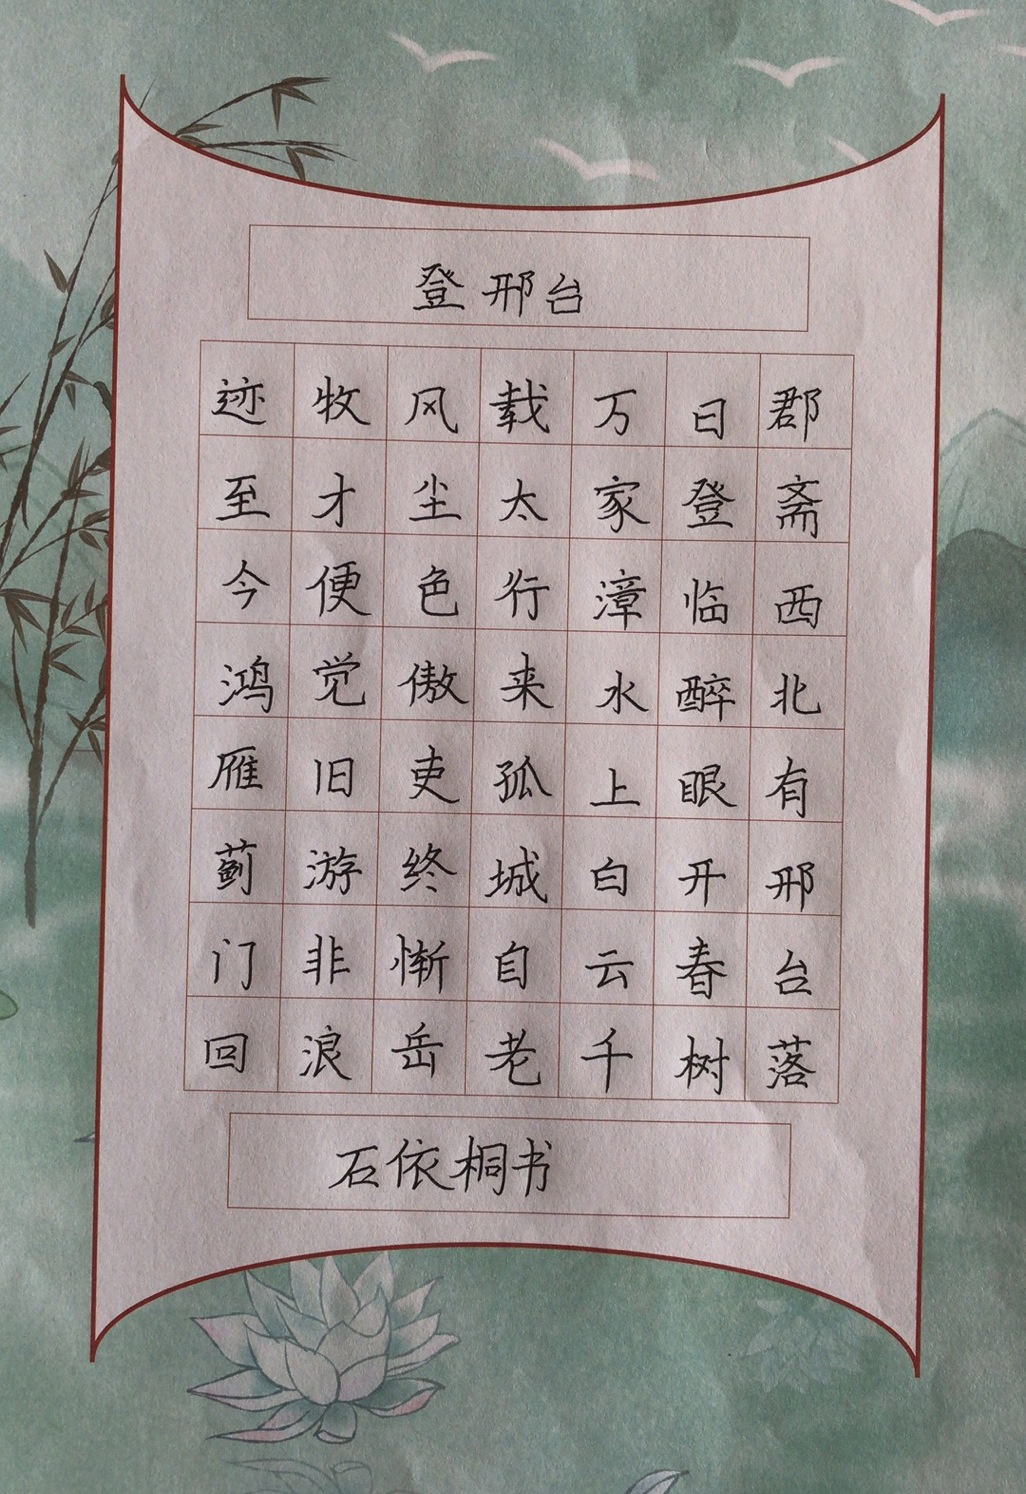 登邢台
郡斋西北有邢台落
日登临醉眼开春树
万家漳水上白云千
载太行来孤城自老
风尘色傲吏终惭岳
牧才便觉旧游非浪
迹至今鸿雁蓟门回
石依桐书